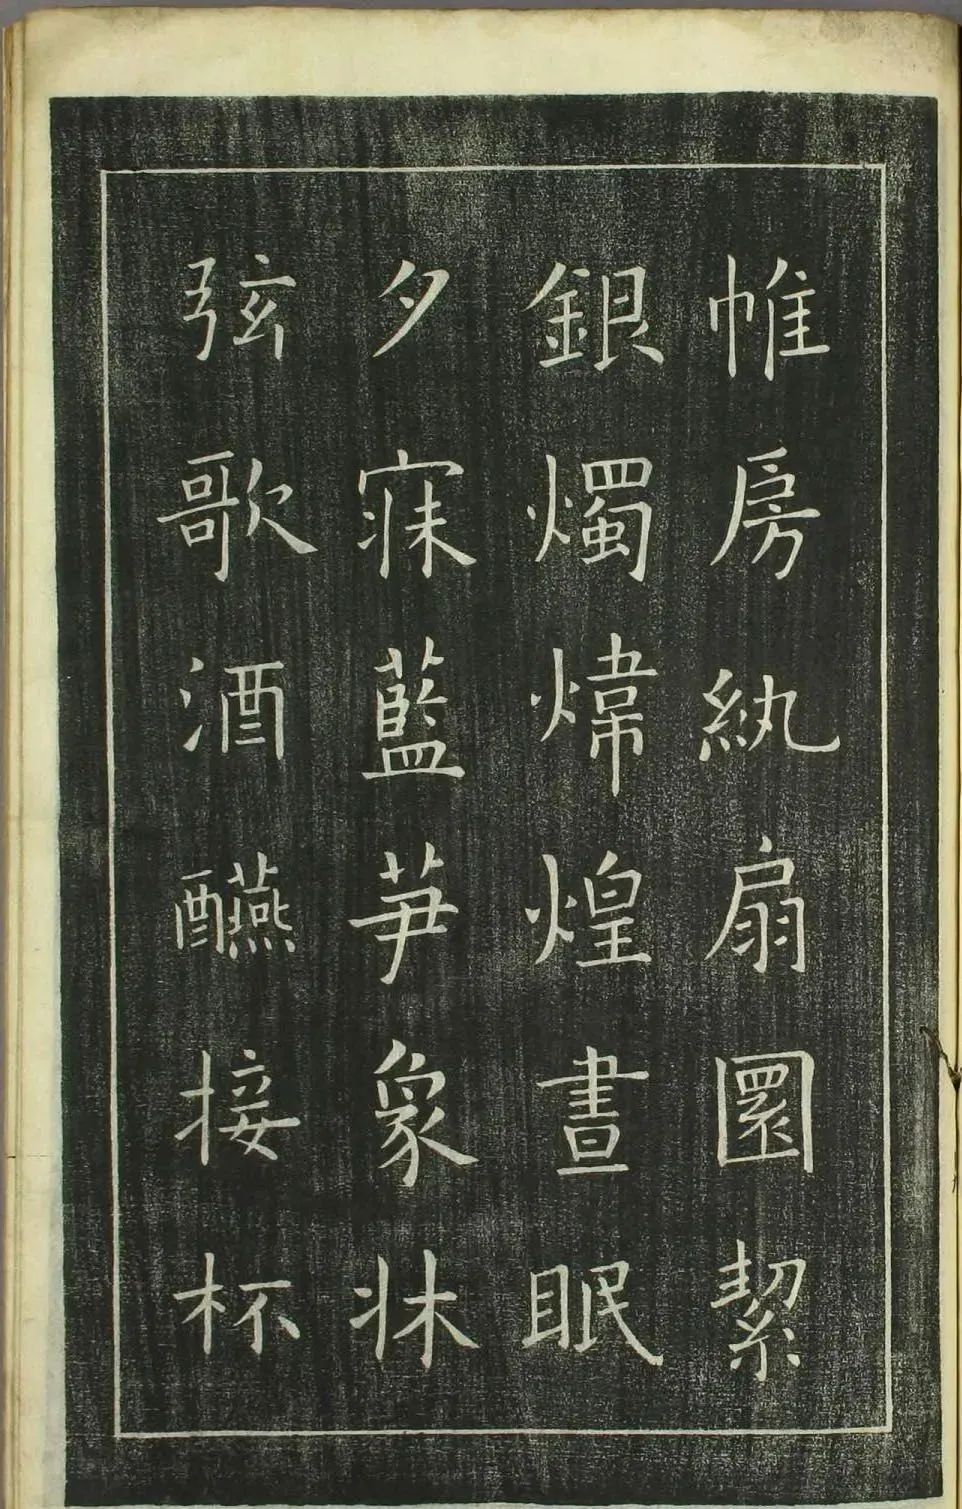 帷房紈扇圜絜
銀燭煒煌晝眠
夕寐藍芛象牀
弦歌酒醼接杯